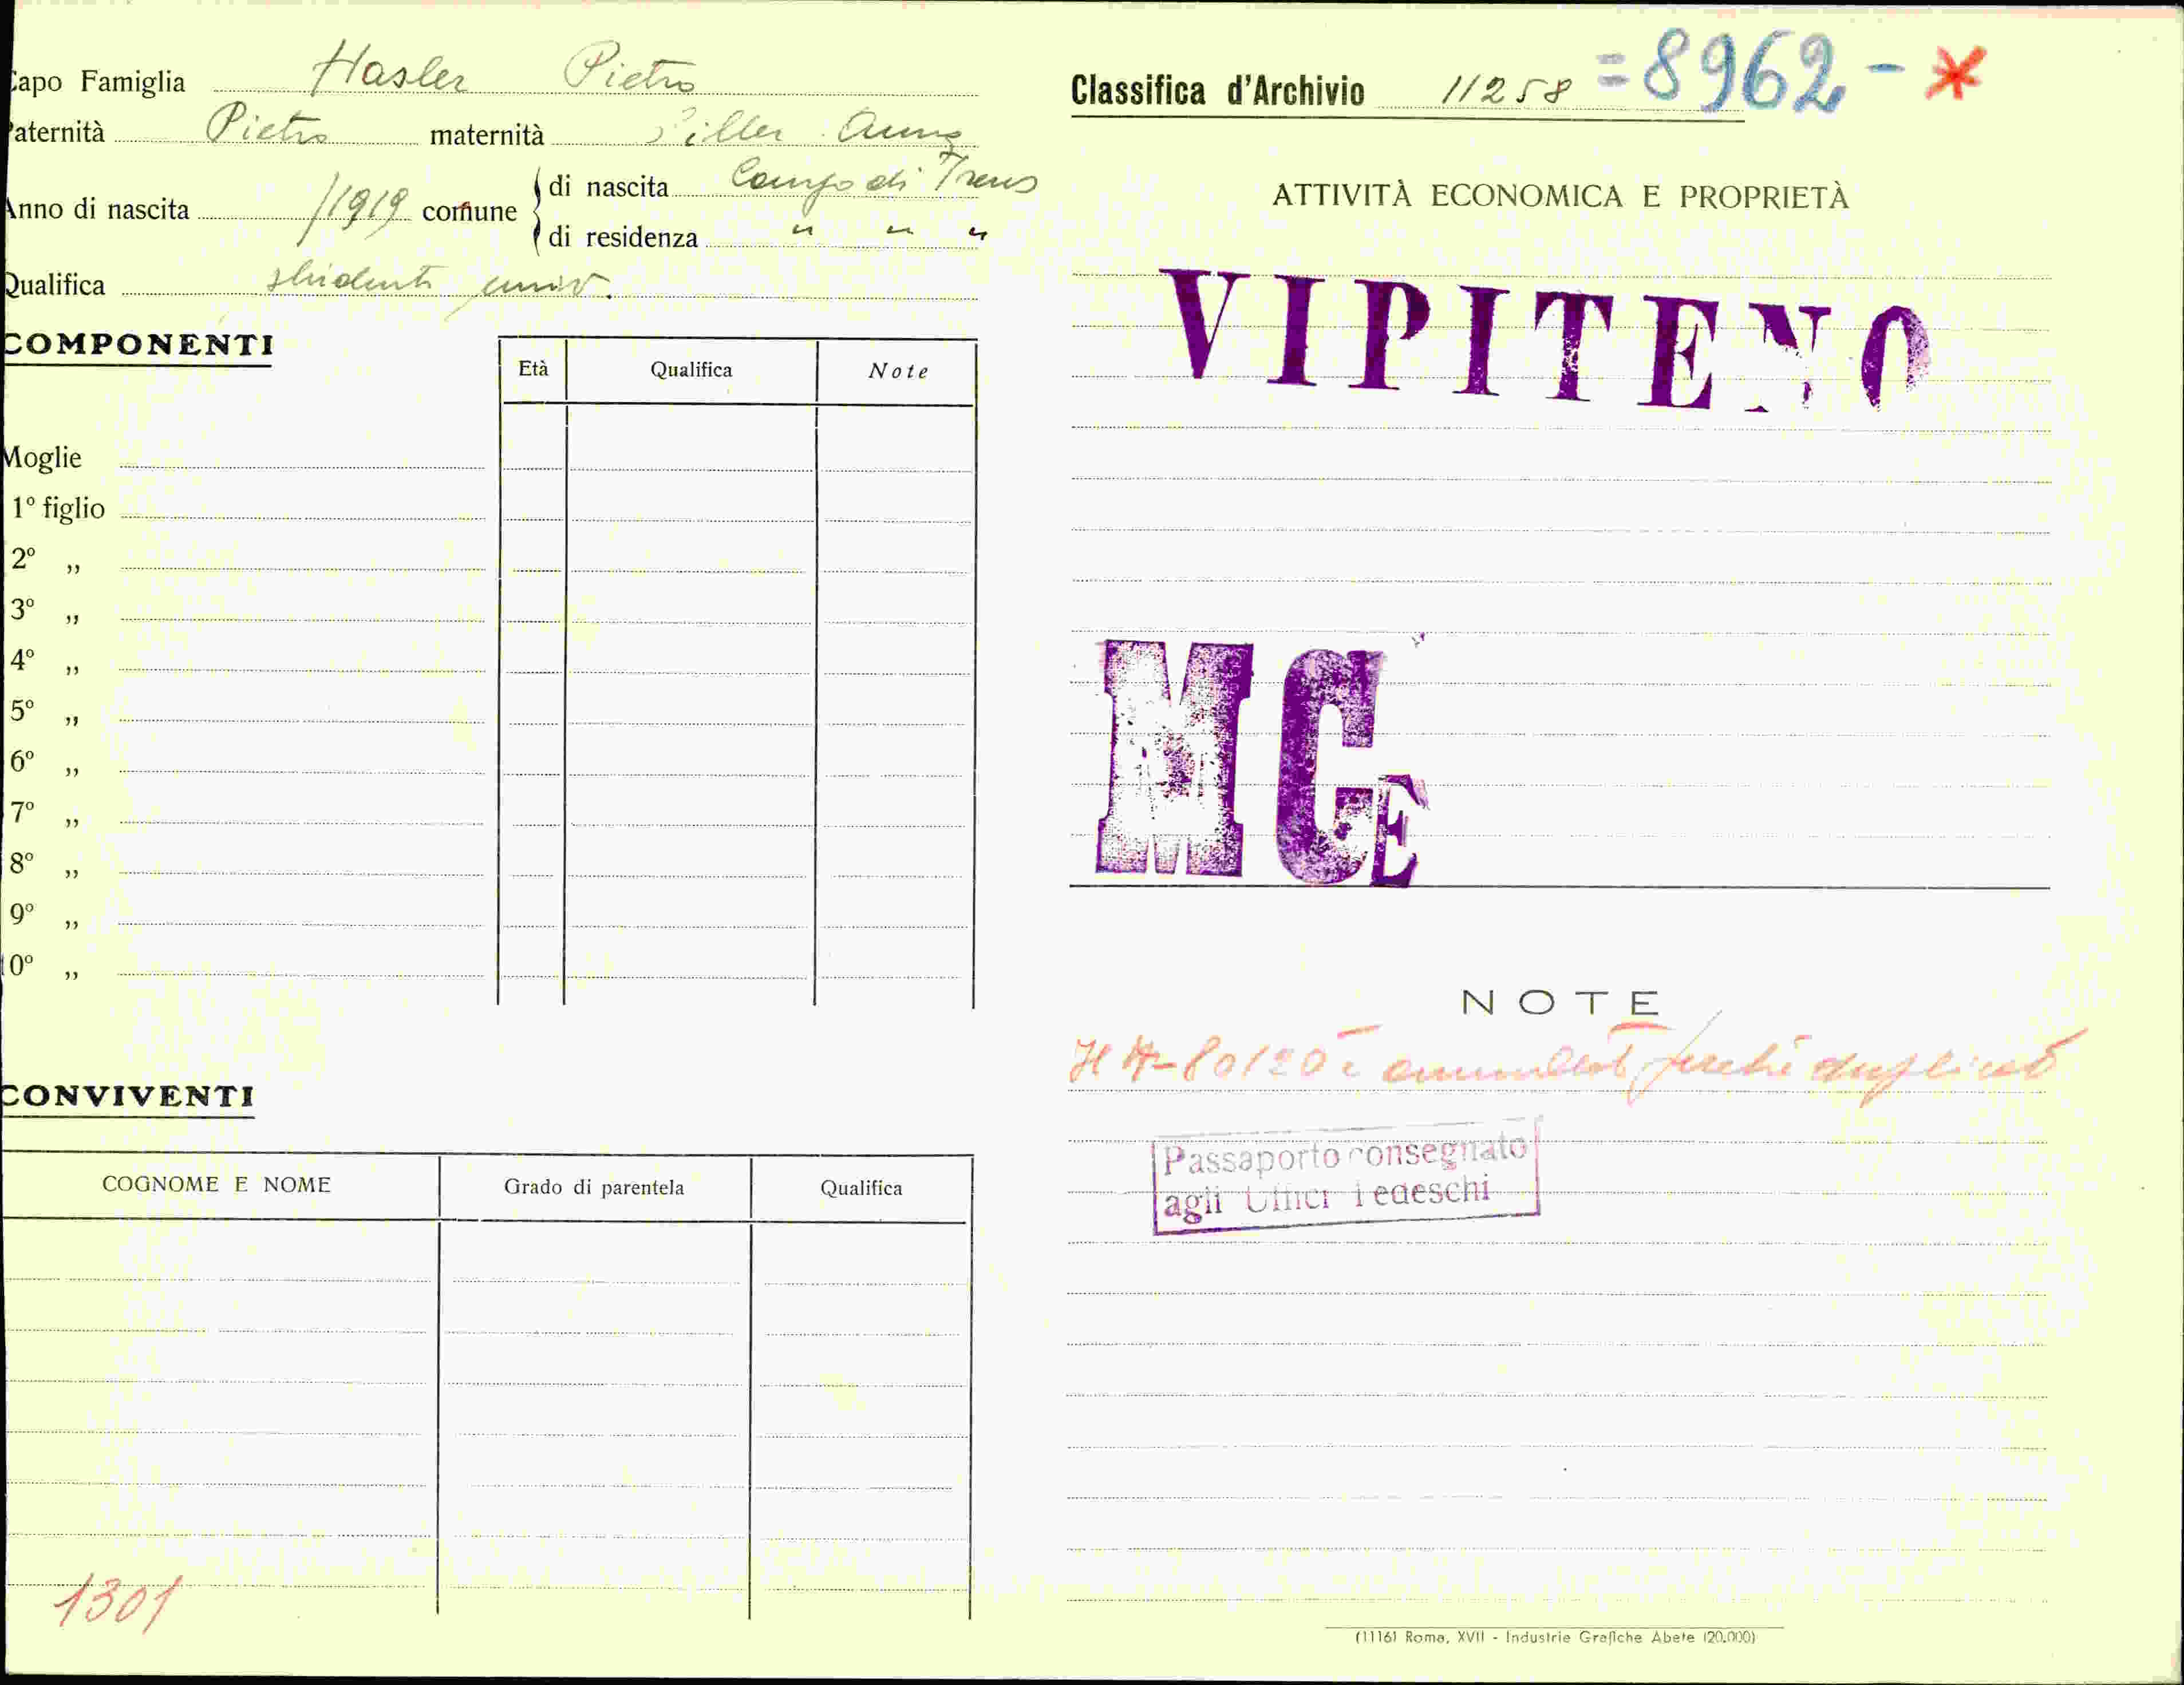 Capo Famiglia Hasler Pietro
Paternità Pietro maternità Siller Anna
Anno di nascita 1919 comune di nascita Campo di Trens
di residenza " " "
Qualifica studente univ.
COMPONENTI
Età Qualifica Note
Moglie
1º figlio
2º ,,
3º ,,
4º ,,
5º ,,
6º ,,
7º ,,
8º ,,
9º ,,
10º ,,
CONVIVENTI
COGNOME E NOME Grado di parentela Qualifica
1301
Classifica d'Archivio 11258 =8962-*
ATTIVITÀ ECONOMICA E PROPRIETÀ
VIPITENO
MCE
NOTE
80120 è annullato perché duplicato
Passaporto consegnato
agli Uffici Tedeschi
(1116) Roma, XVII - Industrie Grafiche Abete (20.000)